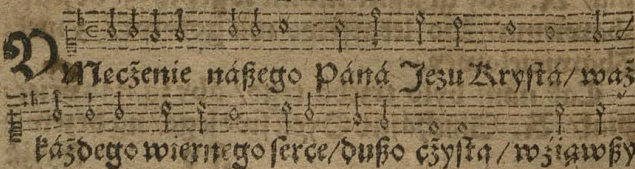 UMecżenie náßego Páná Jezu Krystá/ waż
káżdego wiernego serce/dußo cżysta/wziąwßy